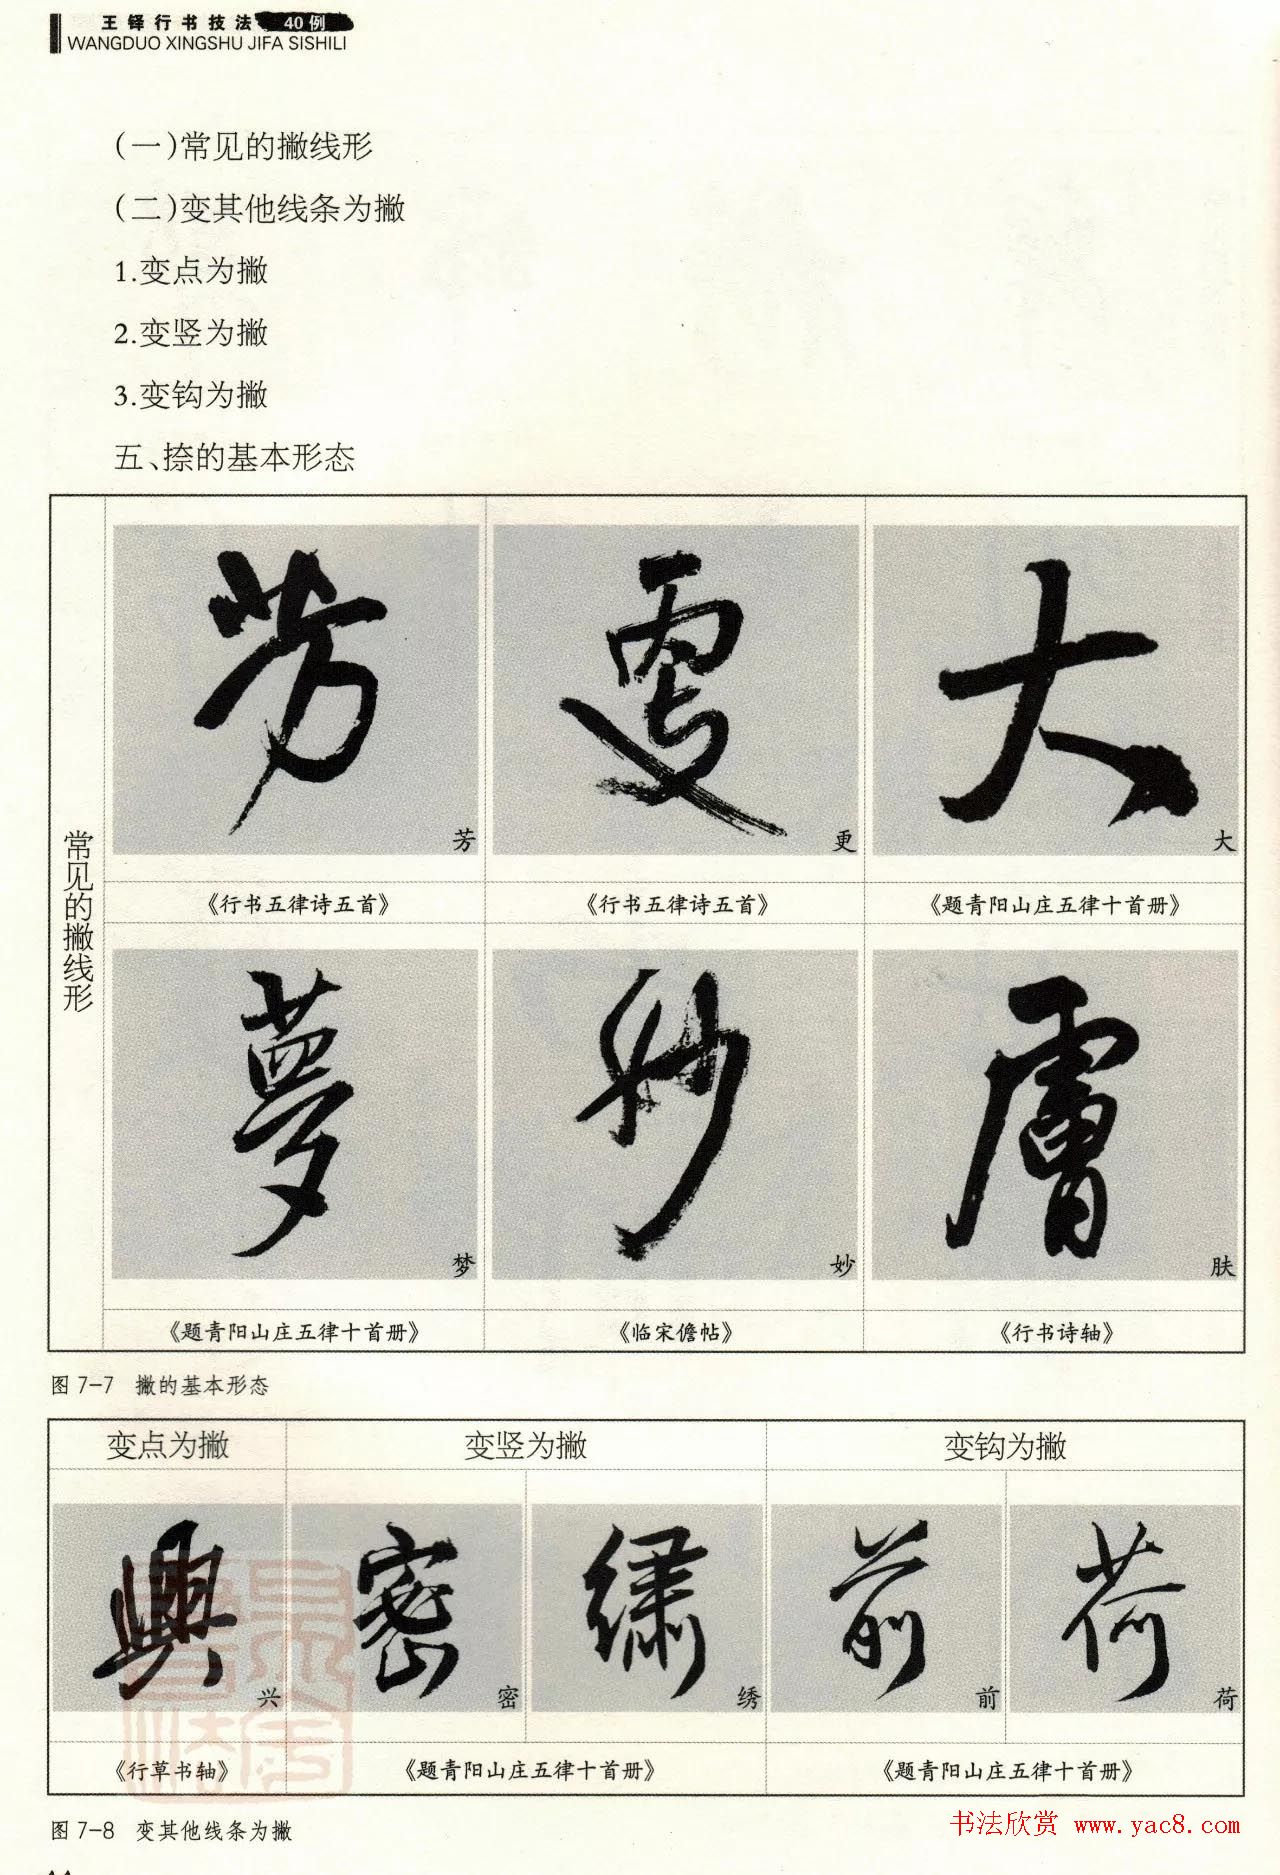 王铎行书技法 40例
WANGDUO XINGSHU JIFA SISHILI
(一)常见的撇线形
(二)变其他线条为撇
1.变点为撇
2.变竖为撇
3.变钩为撇
五、捺的基本形态
常见的撇线形
芳 更 大
芳 更 大
《行书五律诗五首》 《行书五律诗五首》 《题青阳山庄五律十首册》
夢 妙 膚
梦 妙 肤
《题青阳山庄五律十首册》 《临宋儋帖》 《行书诗轴》
图 7-7 撇的基本形态
变点为撇 变竖为撇 变钩为撇
興 密 繡 前 荷
兴 密 绣 前 荷
《行草书轴》 《题青阳山庄五律十首册》 《题青阳山庄五律十首册》
图 7-8 变其他线条为撇
书法欣赏 www.yac8.com